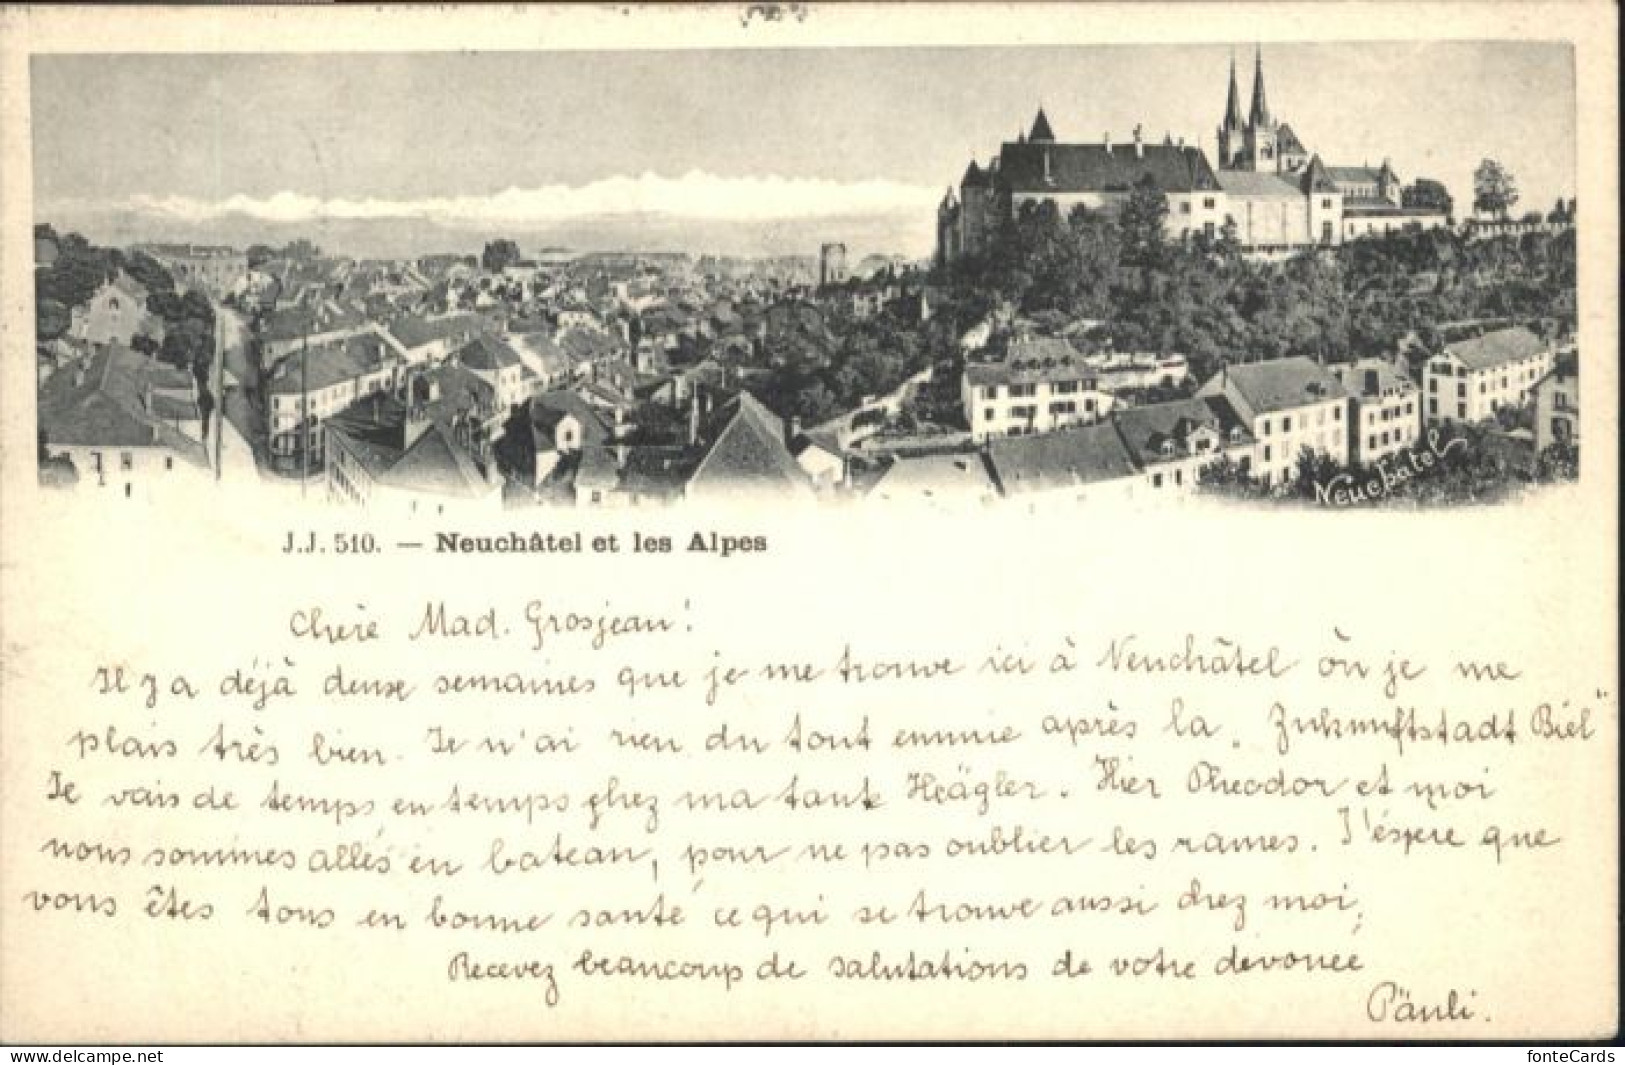 Neuchatel
J.J. 510. — Neuchâtel et les Alpes
Chère Mad. Grosjean!
Il y a déjà deux semaines que je me trouve ici à Neuchâtel òn je me
plais très bien. Je n'ai rien du tout ennuie après la „Zukunftstadt Biel"
Je vais de temps en temps chez ma tante Heägler. Hier Theodor et moi
nous sommes allés en bateau, pour ne pas oublier les rames. J'éspère que
vous êtes tous en bonne santé ce qui se trouve aussi chez moi,
Recevez beaucoup de salutations de votre dévouée
Päuli.
www.delcampe.net
fonteCards